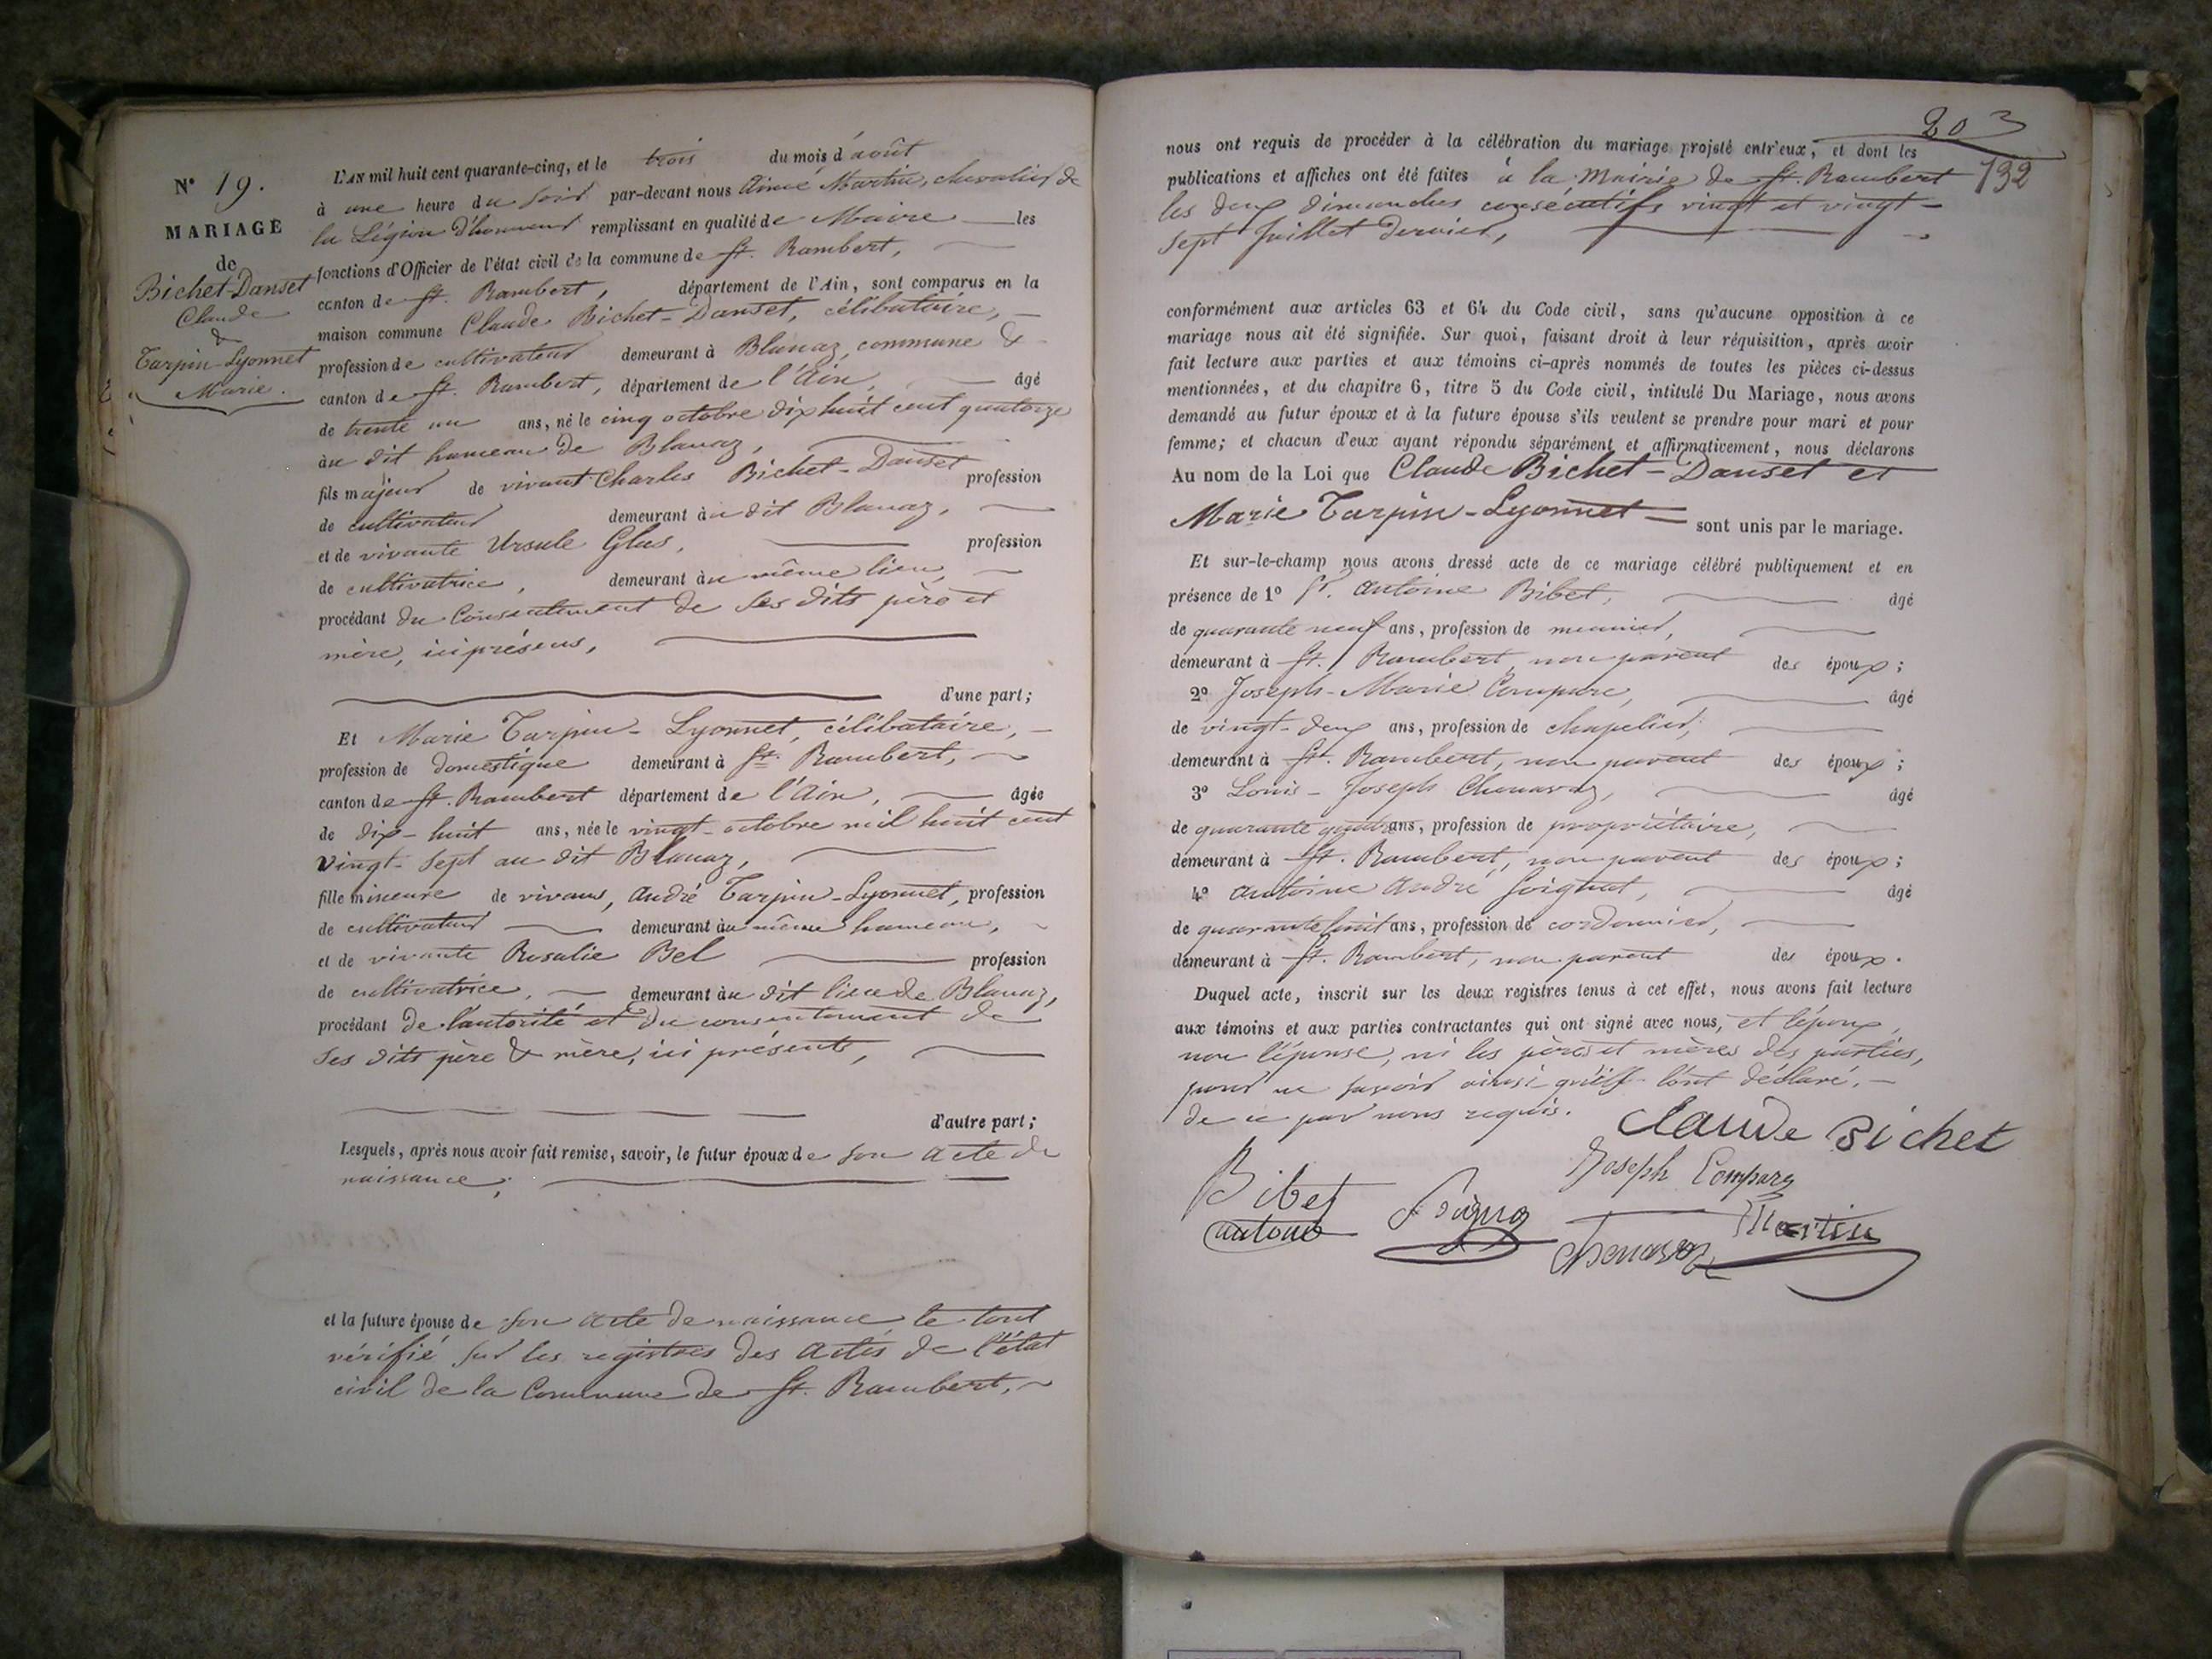 N° 19.
MARIAGE
de
Bichet-Danset
Claude
&
Tarpin-Lyonnet
Marie.
L'AN mil huit cent quarante-cinq, et le trois du mois d'août
à une heure du soir par-devant nous Aimé Martin, chevalier de
la Légion d'honneur remplissant en qualité de Maire les
fonctions d'Officier de l'état civil de la commune de St. Rambert,
canton de St. Rambert, département de l'Ain, sont comparus en la
maison commune Claude Bichet-Danset, célibataire,
profession de cultivateur demeurant à Blanaz, commune &
canton de St. Rambert, département de l'Ain, âgé
de trente un ans, né le cinq octobre dix huit cent quatorze
au dit hameau de Blanaz,
fils majeur de vivant Charles Bichet-Danset profession
de cultivateur demeurant au dit Blanaz,
et de vivante Ursule Glas, profession
de cultivatrice, demeurant au même lieu,
procédant du consentement de ses dits père et
mère, ici présens,
d'une part;
Et Marie Tarpin-Lyonnet, célibataire,
profession de domestique demeurant à St. Rambert,
canton de St. Rambert département de l'Ain, âgée
de dix-huit ans, née le vingt octobre mil huit cent
vingt-sept au dit Blanaz,
fille mineure de vivans, André Tarpin-Lyonnet, profession
de cultivateur demeurant au même hameau,
et de vivante Rosalie Bel profession
de cultivatrice, demeurant au dit lieu de Blanaz,
procédant de l'autorité et du consentement de
ses dits père & mère, ici présents,
d'autre part;
Lesquels, après nous avoir fait remise, savoir, le futur époux de son acte de
naissance;
et la future épouse de son acte de naissance le tout
vérifié sur les registres des actes de l'état
civil de la Commune de St. Rambert,
203
132
nous ont requis de procéder à la célébration du mariage projeté entr'eux, et dont les
publications et affiches ont été faites à la Mairie de St. Rambert
les deux dimanches consécutifs vingt et vingt-
sept Juillet dernier,
conformément aux articles 63 et 64 du Code civil, sans qu'aucune opposition à ce
mariage nous ait été signifiée. Sur quoi, faisant droit à leur réquisition, après avoir
fait lecture aux parties et aux témoins ci-après nommés de toutes les pièces ci-dessus
mentionnées, et du chapitre 6, titre 5 du Code civil, intitulé Du Mariage, nous avons
demandé au futur époux et à la future épouse s'ils veulent se prendre pour mari et pour
femme; et chacun d'eux ayant répondu séparément et affirmativement, nous déclarons
Au nom de la Loi que Claude Bichet-Danset et
Marie Tarpin-Lyonnet sont unis par le mariage.
Et sur-le-champ nous avons dressé acte de ce mariage célébré publiquement et en
présence de 1° Sr. Antoine Bibet, âgé
de quarante neuf ans, profession de meunier,
demeurant à St. Rambert, non parent des époux;
2° Joseph-Marie Compare, âgé
de vingt-deux ans, profession de chapelier,
demeurant à St. Rambert, non parent des époux;
3° Louis-Joseph Chenavaz, âgé
de quarante quatre ans, profession de propriétaire,
demeurant à St. Rambert, non parent des époux;
4° Antoine André Soignat, âgé
de quarante huit ans, profession de cordonnier,
demeurant à St. Rambert, non parent des époux.
Duquel acte, inscrit sur les deux registres tenus à cet effet, nous avons fait lecture
aux témoins et aux parties contractantes qui ont signé avec nous, et l'époux,
non l'épouse, ni les pères et mères des parties,
pour ne savoir ainsi qu'ils l'ont déclaré,
de ce par nous requis.
Claude Bichet
Joseph Compare
Bibet
antoine
Martin